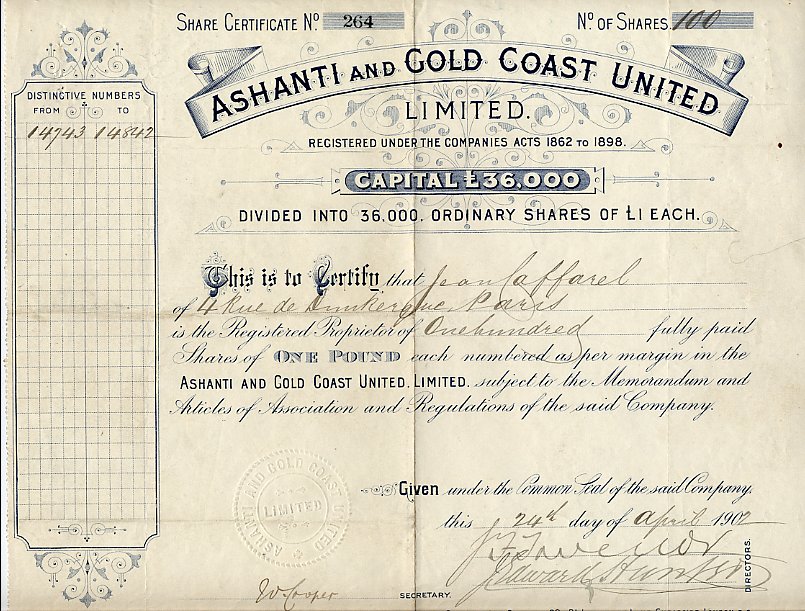 SHARE CERTIFICATE Nº 264 Nº OF SHARES. 100
ASHANTI AND GOLD COAST UNITED
LIMITED.
REGISTERED UNDER THE COMPANIES ACTS 1862 TO 1898.
CAPITAL £36,000
DIVIDED INTO 36,000, ORDINARY SHARES OF £1 EACH.
DISTINCTIVE NUMBERS
FROM TO
14743 14842
This is to Certify that Jean Caffarel
of 4 Rue de Dunkerque, Paris
is the Registered Proprietor of One hundred fully paid
Shares of ONE POUND each numbered as per margin in the
ASHANTI AND GOLD COAST UNITED, LIMITED. subject to the Memorandum and
Articles of Association and Regulations of the said Company.
ASHANTI AND GOLD COAST UNITED
LIMITED
Given under the Common Seal of the said Company.
this 24th day of April 1902
Edward
DIRECTORS.
W. Cooper SECRETARY.